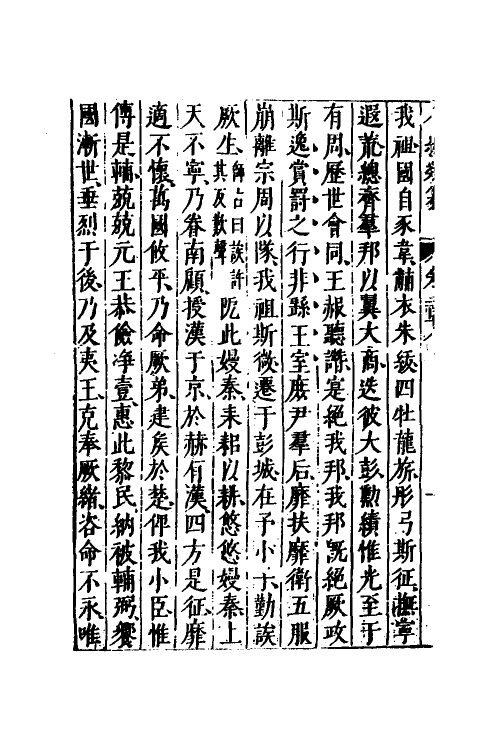 我祖國自豕韋黼衣朱紱四牡龍旂彤弓斯征撫寧
遐荒總齊羣邦以翼大商迭彼大彭勲績惟光至于
有周歷世會同王赧聽譖寔絕我邦我邦旣絕厥政
斯逸賞罰之行非繇王室庶尹羣后靡扶靡衛五服
崩離宗周以隊我祖斯微遷于彭城在予小子勤誒
厥生師古曰誒許其反歎聲阨此嫚秦耒耜以耕悠悠嫚秦上
天不寧乃眷南顧授漢于京於赫有漢四方是征靡
適不懷萬國攸平乃命厥弟建矦於楚俾我小臣惟
傅是輔兢兢元王恭儉净壹惠此黎民納彼輔弼饗
國漸世垂烈于後乃及夷王克奉厥緒咨命不永唯